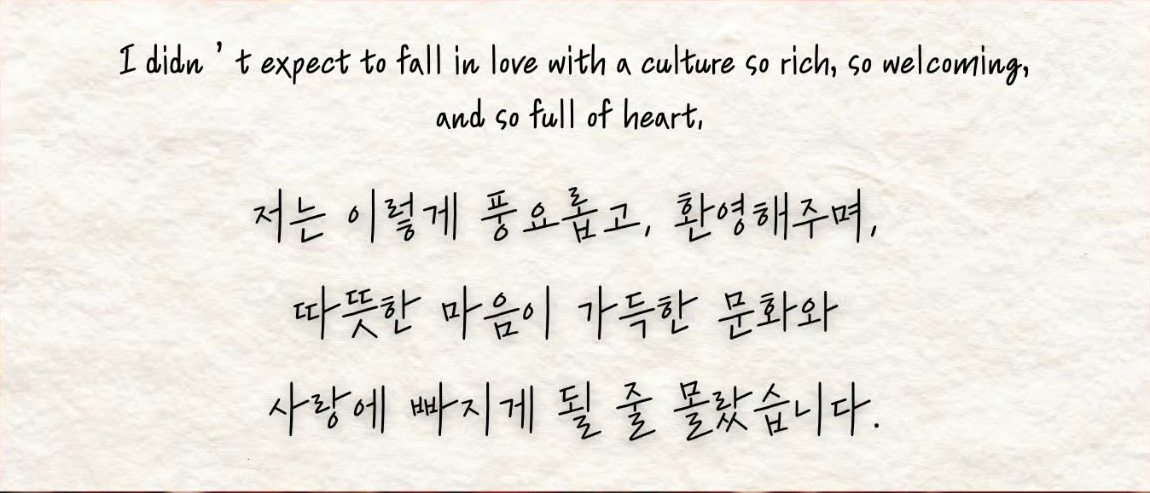 I didn't expect to fall in love with a culture so rich, so welcoming,
and so full of heart,
저는 이렇게 풍요롭고, 환영해주며,
따뜻한 마음이 가득한 문화와
사랑에 빠지게 될 줄 몰랐습니다.